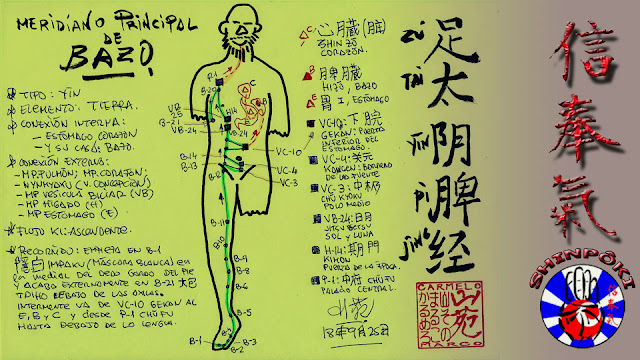 MERIDIANO PRINCIPAL
DE
BAZO
TIPO: YIN
ELEMENTO: TIERRA.
CONEXIÓN INTERNA:
- ESTÓMAGO CORAZÓN
- Y SU CASA: BAZO.
CONEXIÓN EXTERNA:
- MP. PULMÓN; MP. CORAZÓN;
- NYNMYAKU (V. CONCEPCIÓN)
- MP VESÍCULA BILIAR (VB)
- MP HÍGADO (H)
- MP ESTÓMAGO (E)
FLUJO KI: ASCENDENTE.
RECORRIDO: EMPIEZA EN B-1
隠白 IMPAKU (MÁSCARA BLANCA) EN
LA MEDIAL DEL DEDO GORDO DEL PIE
Y ACABA EXTERNAMENTE EN B-21 大包
DEBAJO DE LAS AXILAS.
INTERNAMENTE VA DE VC-10 GEKAN AL
E, B Y C Y DESDE P-1 CHŪFU
HASTA DEBAJO DE LA LENGUA.
P-1
B-20
VB
B-21
VB-24
B-14
B-13
H14
VB-24
C
B
E
VC-10
VC-4
VC-3
B-11
B-10
B-9
B-8
B-6
B-5
B-1
B-2
B-3
C
心臓
SHINZŌ
CORAZÓN.
B
脾臓
HIZŌ, BAZO
E
胃 I, ESTÓMAGO
VC-10: 下脘
GEKAN: PUERTA
INFERIOR DEL
ESTÓMAGO
VC-4: 関元
VC-3: 中極
CHŪKYOKU
POLO MEDIO
VB-24: 日月
JITSUGETSU
SOL Y LUNA
H-14: 期門
KIMON
PUERTA DE LA ÉPOCA.
P-1: 中府 CHŪFU
PALACIO CENTRAL.
18年9月25日
zú
足
TAI
太
yīn
阴
pí
脾
jīng
经
CARMELO
MARCO
信
奉
氣
SHINPŌKI